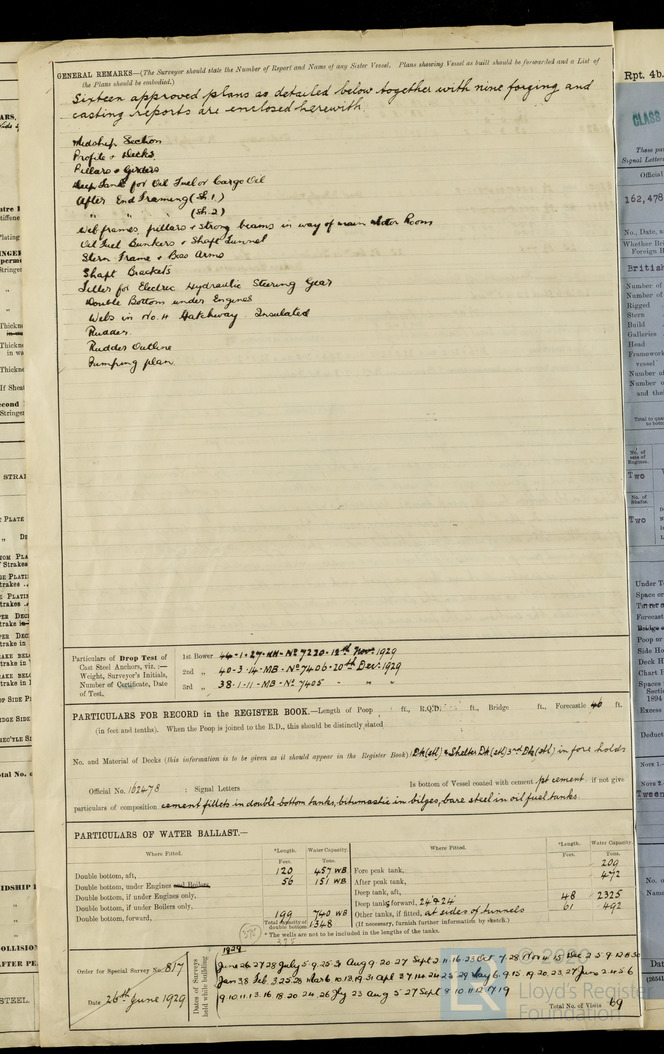 GENERAL REMARKS—(The Surveyor should state the Number of Report and Name of any Sister Vessel. Plans showing Vessel as built should be forwarded and a List of
the Plans should be embodied.)
Sixteen approved plans as detailed below together with nine forging and
casting reports are enclosed herewith.
Midship Section
Profile + Decks
Pillars + Girders
Deep Tank for Oil Fuel or Cargo Oil
After End Framing (Sh. 1)
" " " (Sh. 2)
Web frames, pillars + strong beams in way of main Motor Room
Oil Fuel Bunkers + Shaft Tunnel
Stern Frame + Boss Arms
Shaft Brackets
Tiller for Electric Hydraulic Steering Gear
Double Bottom under Engines
Webs in No. 4 Hatchway. Insulated
Rudder
Rudder Outline
Pumping plan.
Particulars of Drop Test of
Cast Steel Anchors, viz.:—
Weight, Surveyor's Initials,
Number of Certificate, Date
of Test.
1st Bower 44-1-27-KH-No 7220-12th Nov. 1929
2nd " 40-3-14-MB-No 7406-20th Dec. 1929
3rd " 38-1-11-MB-No 7405 - " "
PARTICULARS FOR RECORD in the REGISTER BOOK.—Length of Poop ft., R.Q.D. ft., Bridge ft., Forecastle 46 ft.
(in feet and tenths). When the Poop is joined to the B.D., this should be distinctly stated
No. and Material of Decks (this information is to be given as it should appear in the Register Book) Dk (stl) & Shelter Dk (stl) 3rd Dk (stl) in fore holds
Official No. 162478 : Signal Letters Is bottom of Vessel coated with cement pt cement if not give
particulars of composition cement fillets in double bottom tanks, bitumastic in bilges, bare steel in oil fuel tanks.
PARTICULARS OF WATER BALLAST.—
Where Fitted. *Length. Water Capacity. Where Fitted. *Length. Water Capacity.
Feet. Tons. Feet. Tons.
Double bottom, aft, 120 457 WB Fore peak tank, 209
Double bottom, under Engines and Boilers, 56 151 WB After peak tank, 472
Double bottom, if under Engines only, Deep tank, aft,
Double bottom, if under Boilers only, Deep tank, forward, 24' & 24' 48 2325
Double bottom, forward, 199 740 WB Other tanks, if fitted, at sides of tunnels 61 492
Total capacity of double bottom 1348 (If necessary, furnish further information by sketch.)
* The wells are not to be included in the lengths of the tanks.
Order for Special Survey No. 817
Date 26th June 1929
Dates of Surveys
held while building
Total No. of Visits 69
© 2020
Lloyd's Register
Foundation
Rpt. 4b.
CLASS
These par
Signal Letter
Official
162,478
No., Date, a
Whether Bri
Foreign B
British
Number of
Number of
Rigged
Stern
Build
Galleries
Head
Framework
vessel
Number of
Number o
and thei
Total to qua
to bott
No. of
sets of
Engines.
Two
No. of
Shafts.
Two
Under T
Space or
Forecast
Bridge s
Poop or
Side Ho
Deck H
Chart H
Spaces
Secti
1894
Excess
Deduct
Note 1.
Note 2.
Tween
No. o
Name
Dat